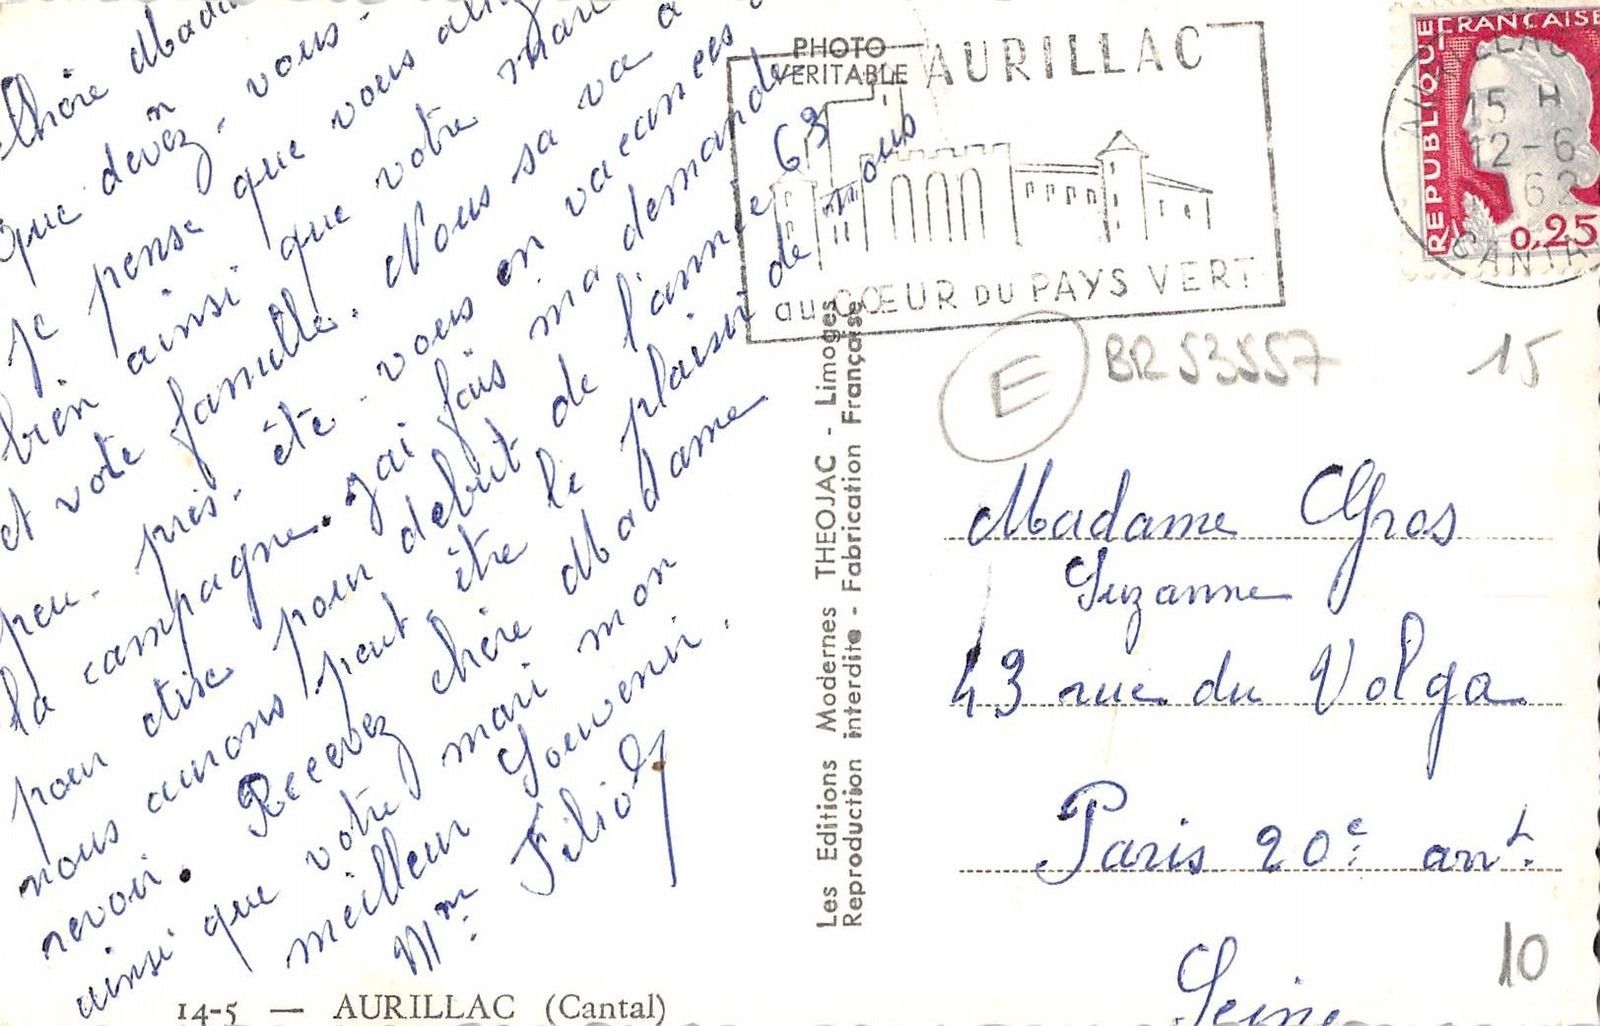 Chère Mada
que devez-vous-
je pense que vous allez
bien ainsi que votre mari
et vote famille. Nous sa va a
peu-près-été-vous en vacances
la campagne. J'ai fais ma demande
pour être pour debut de l'année 63
nous aurons peut-être le plaisir de nous
revoir. Recevez chère Madame
ainsi que votre mari mon
meilleur Souvenir.
Mme Filiol
14-5 — AURILLAC (Cantal)
Les Editions Modernes THEOJAC - Limoges
Reproduction interdite - Fabrication Française
PHOTO
VERITABLE
AURILLAC
au CŒUR DU PAYS VERT
REPUBLIQUE FRANÇAISE
0,25
15 H
12-6
62
CANTAL
E
BR 53557
15
Madame Gros
Suzanne
43 rue du Volga
Paris 20e art.
Seine
10